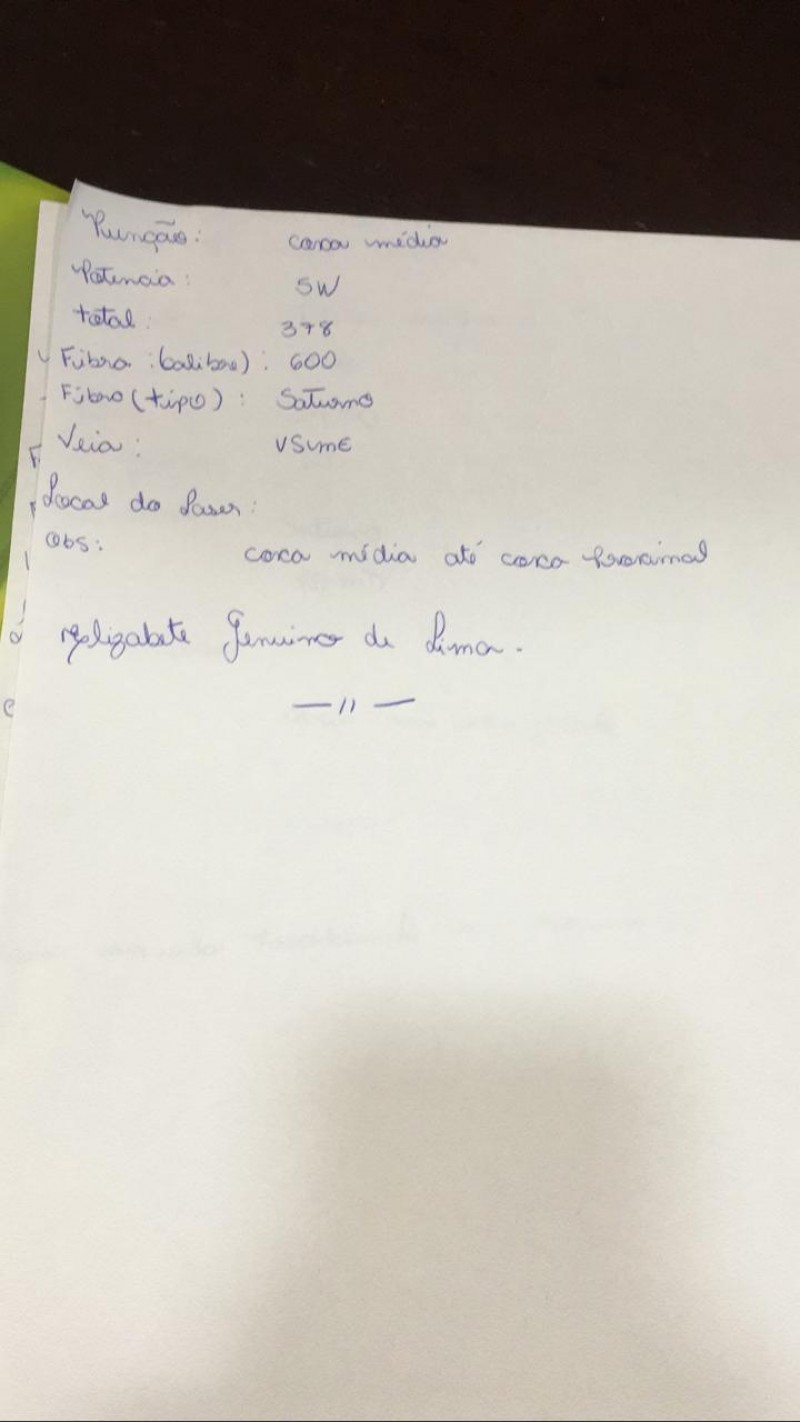 Punção: coxa média
Potencia: 5W
total: 378
Fibra: (calibre): 600
Fibra (tipo): Saturno
Veia: VSME
Local do laser:
Obs: coxa média até coxa proximal
Genuino de Lima.
— 11 —